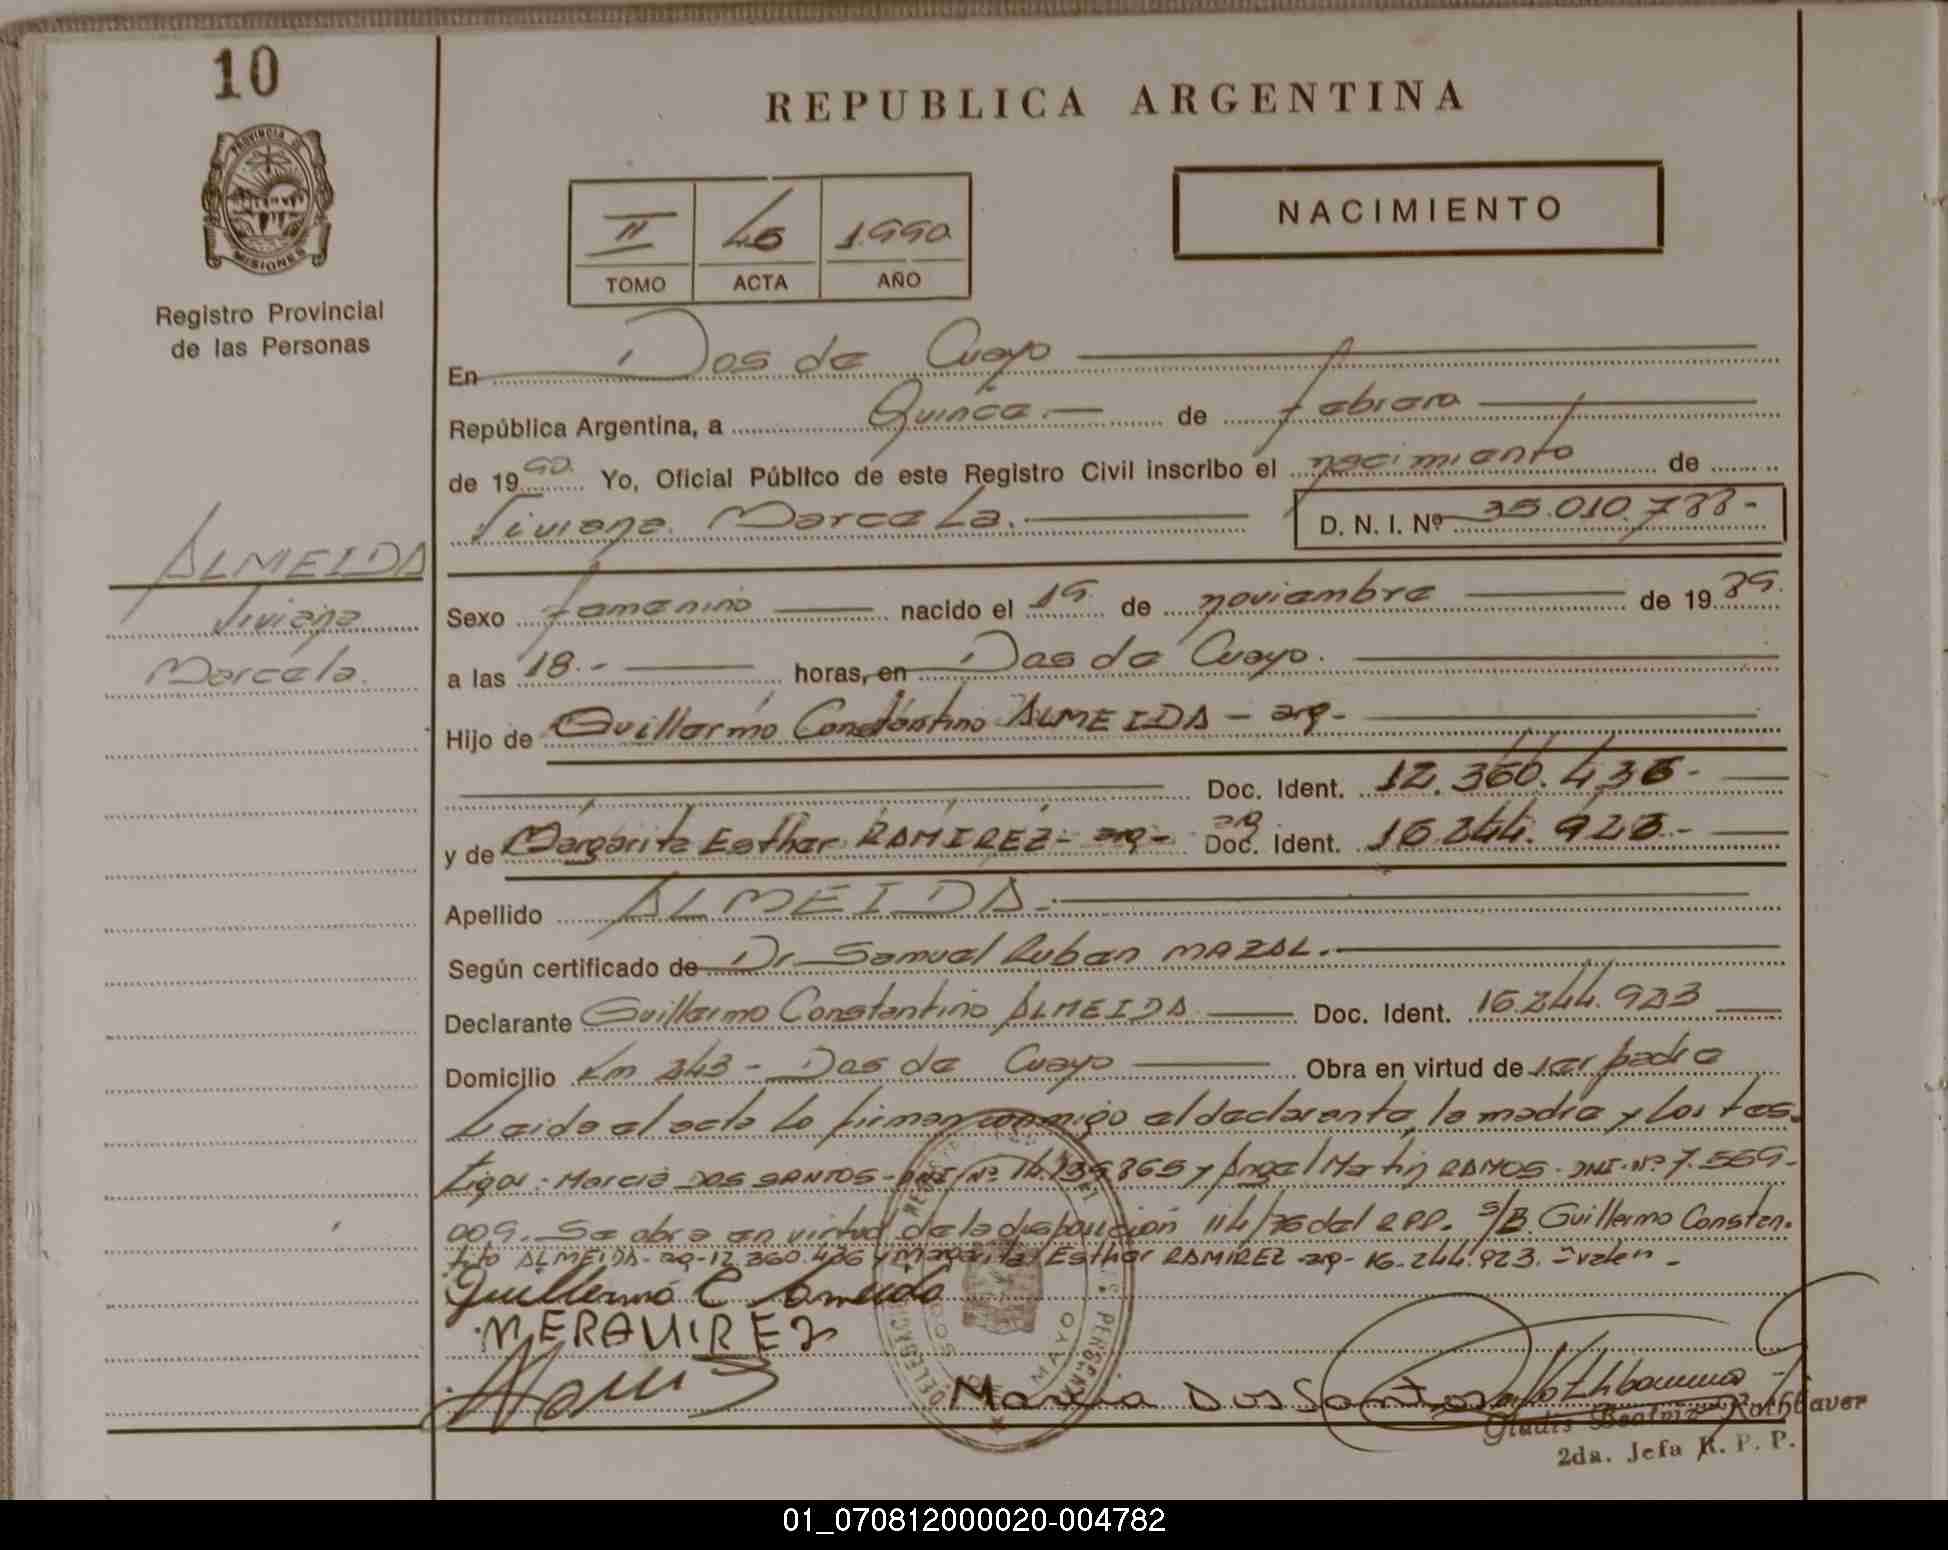 10
REPUBLICA ARGENTINA
PROVINCIA DE
MISIONES
Registro Provincial
de las Personas
II 46 1.990
TOMO ACTA AÑO
NACIMIENTO
En Dos de Mayo
República Argentina, a Quince.— de febrero
de 1990. Yo, Oficial Público de este Registro Civil inscribo el nacimiento de
Viviana Marcela. D. N. I. Nº 35.010.788-
ALMEIDA
Viviana
Marcela.
Sexo femenino nacido el 19. de noviembre de 1989.
a las 18.- horas, en Dos de Mayo.
Hijo de Guillermo Constantino ALMEIDA - arg-
Doc. Ident. 12.360.436-
y de Margarita Esther RAMIREZ- arg- arg Doc. Ident. 16.244.923.-
Apellido ALMEIDA.
Según certificado de Dr. Samuel Ruben MAZAL.
Declarante Guillermo Constantino ALMEIDA Doc. Ident. 16.244.923
Domicilio Km 243 - Dos de Mayo Obra en virtud de ser padre
Leida el acta lo firman conmigo el declarante, la madre y los tes-
tigos: Marcia DOS SANTOS- DNI Nº y Angel Martin RAMOS- DNI-Nº 7.569-
009. Se obra en virtud de la disposición 114/76 del RPP. S/B. Guillermo Constan-
tino ALMEIDA-arg-12.360.436 y Margarita Esther RAMIREZ -arg- 16.244.923. =valen-
Guillermo C Almeida
M.E RAMIREZ
MAYO
Marcia Dos Santos
Gladis Beatriz Rothbauer
2da. Jefa R. P. P.
01_070812000020-004782